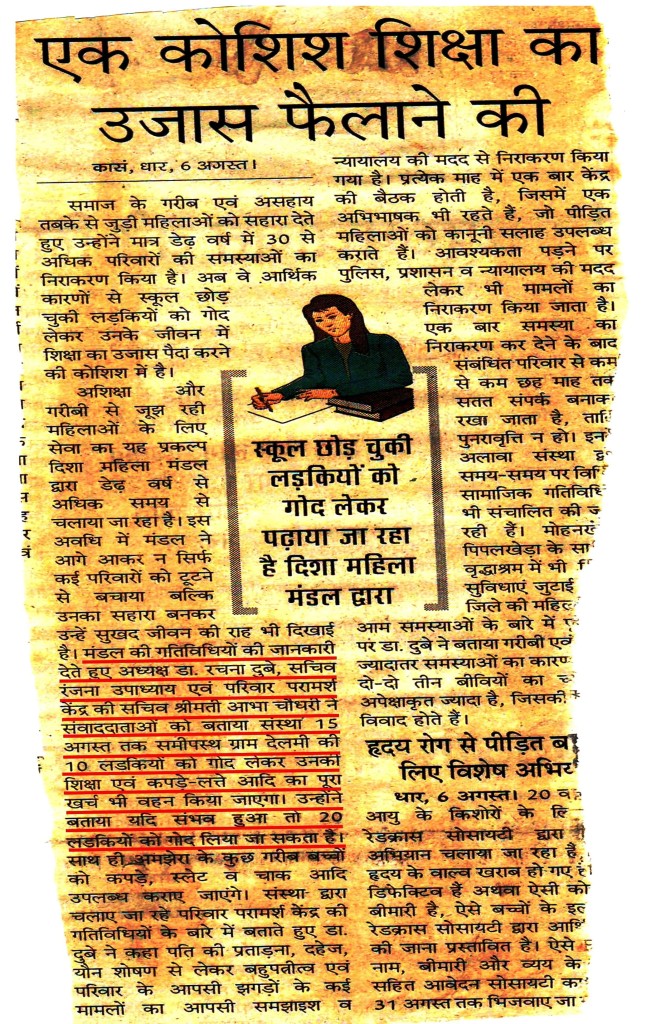 एक कोशिश शिक्षा का
उजास फैलाने की
कासं, धार, 6 अगस्त।
समाज के गरीब एवं असहाय
तबके से जुड़ी महिलाओं को सहारा देते
हुए उन्होंने मात्र डेढ़ वर्ष में 30 से
अधिक परिवारों की समस्याओं का
निराकरण किया है। अब वे आर्थिक
कारणों से स्कूल छोड़
चुकी लड़कियों को गोद
लेकर उनके जीवन में
शिक्षा का उजास पैदा करने
की कोशिश में है।
अशिक्षा और
गरीबी से जूझ रही
महिलाओं के लिए
सेवा का यह प्रकल्प
दिशा महिला मंडल
द्वारा डेढ़ वर्ष से
अधिक समय से
चलाया जा रहा है। इस
अवधि में मंडल ने
आगे आकर न सिर्फ
कई परिवारों को टूटने
से बचाया बल्कि
उनका सहारा बनकर
उन्हें सुखद जीवन की राह भी दिखाई
है। मंडल की गतिविधियों की जानकारी
देते हुए अध्यक्ष डा. रचना दुबे, सचिव
रंजना उपाध्याय एवं परिवार परामर्श
केंद्र की सचिव श्रीमती आभा चौधरी ने
संवाददाताओं को बताया संस्था 15
अगस्त तक समीपस्थ ग्राम देलमी की
10 लडकियों को गोद लेकर उनकी
शिक्षा एवं कपड़े-लत्ते आदि का पूरा
खर्च भी वहन किया जाएगा। उन्होंने
बताया यदि संभव हुआ तो 20
लडकियों को गोद लिया जा सकता है।
साथ ही अमझेरा के कुछ गरीब बच्चों
को कपड़े, स्लेट व चाक आदि
उपलब्ध कराए जाएंगे। संस्था द्वारा
चलाए जा रहे परिवार परामर्श केंद्र की
गतिविधियों के बारे में बताते हुए डा.
दुबे ने कहा पति की प्रताड़ना, दहेज,
यौन शोषण से लेकर बहुपत्नीत्व एवं
परिवार के आपसी झगड़ों के कई
मामलों का आपसी समझाइश व
न्यायालय की मदद से निराकरण किया
गया है। प्रत्येक माह में एक बार केंद्र
की बैठक होती है, जिसमें एक
अभिभाषक भी रहते हैं, जो पीड़ित
महिलाओं को कानूनी सलाह उपलब्ध
कराते हैं। आवश्यकता पड़ने पर
पुलिस, प्रशासन व न्यायालय की मदद
लेकर भी मामलों का
निराकरण किया जाता है।
एक बार समस्या का
निराकरण कर देने के बाद
संबंधित परिवार से कम
से कम छह माह तक
सतत संपर्क बनाक
रखा जाता है,
पुनरावृत्ति न हो।
अलावा संस्था
समय-समय पर
सामाजिक
भी संचालित की
रही हैं।
पिपलखेड़ा के
वृद्धाश्रम में भी
सुविधाएं जुटाई
जिले की
आम समस्याओं के बारे में
पर डा. दुबे ने बताया गरीबी एवं
ज्यादातर समस्याओं का
दो-दो तीन बीवियों का
अपेक्षाकृत ज्यादा है,
विवाद होते हैं।
स्कूल छोड़ चुकी
लड़कियों को
गोद लेकर
पढ़ाया जा रहा
है दिशा महिला
मंडल द्वारा
हृदय रोग से पीड़ित
लिए विशेष
धार, 6 अगस्त। 20
आयु के किशोरों के
रेडक्रास सोसायटी द्वारा
अभियान चलाया जा रहा है
हृदय के वाल्व खराब हो गए
डिफेक्टिव हैं अथवा ऐसी को
बीमारी है, ऐसे बच्चों के
रेडक्रास सोसायटी द्वारा
की जाना प्रस्तावित है। ऐसे
नाम, बीमारी और व्यय के
सहित आवेदन सोसायटी
31 अगस्त तक भिजवाए जा